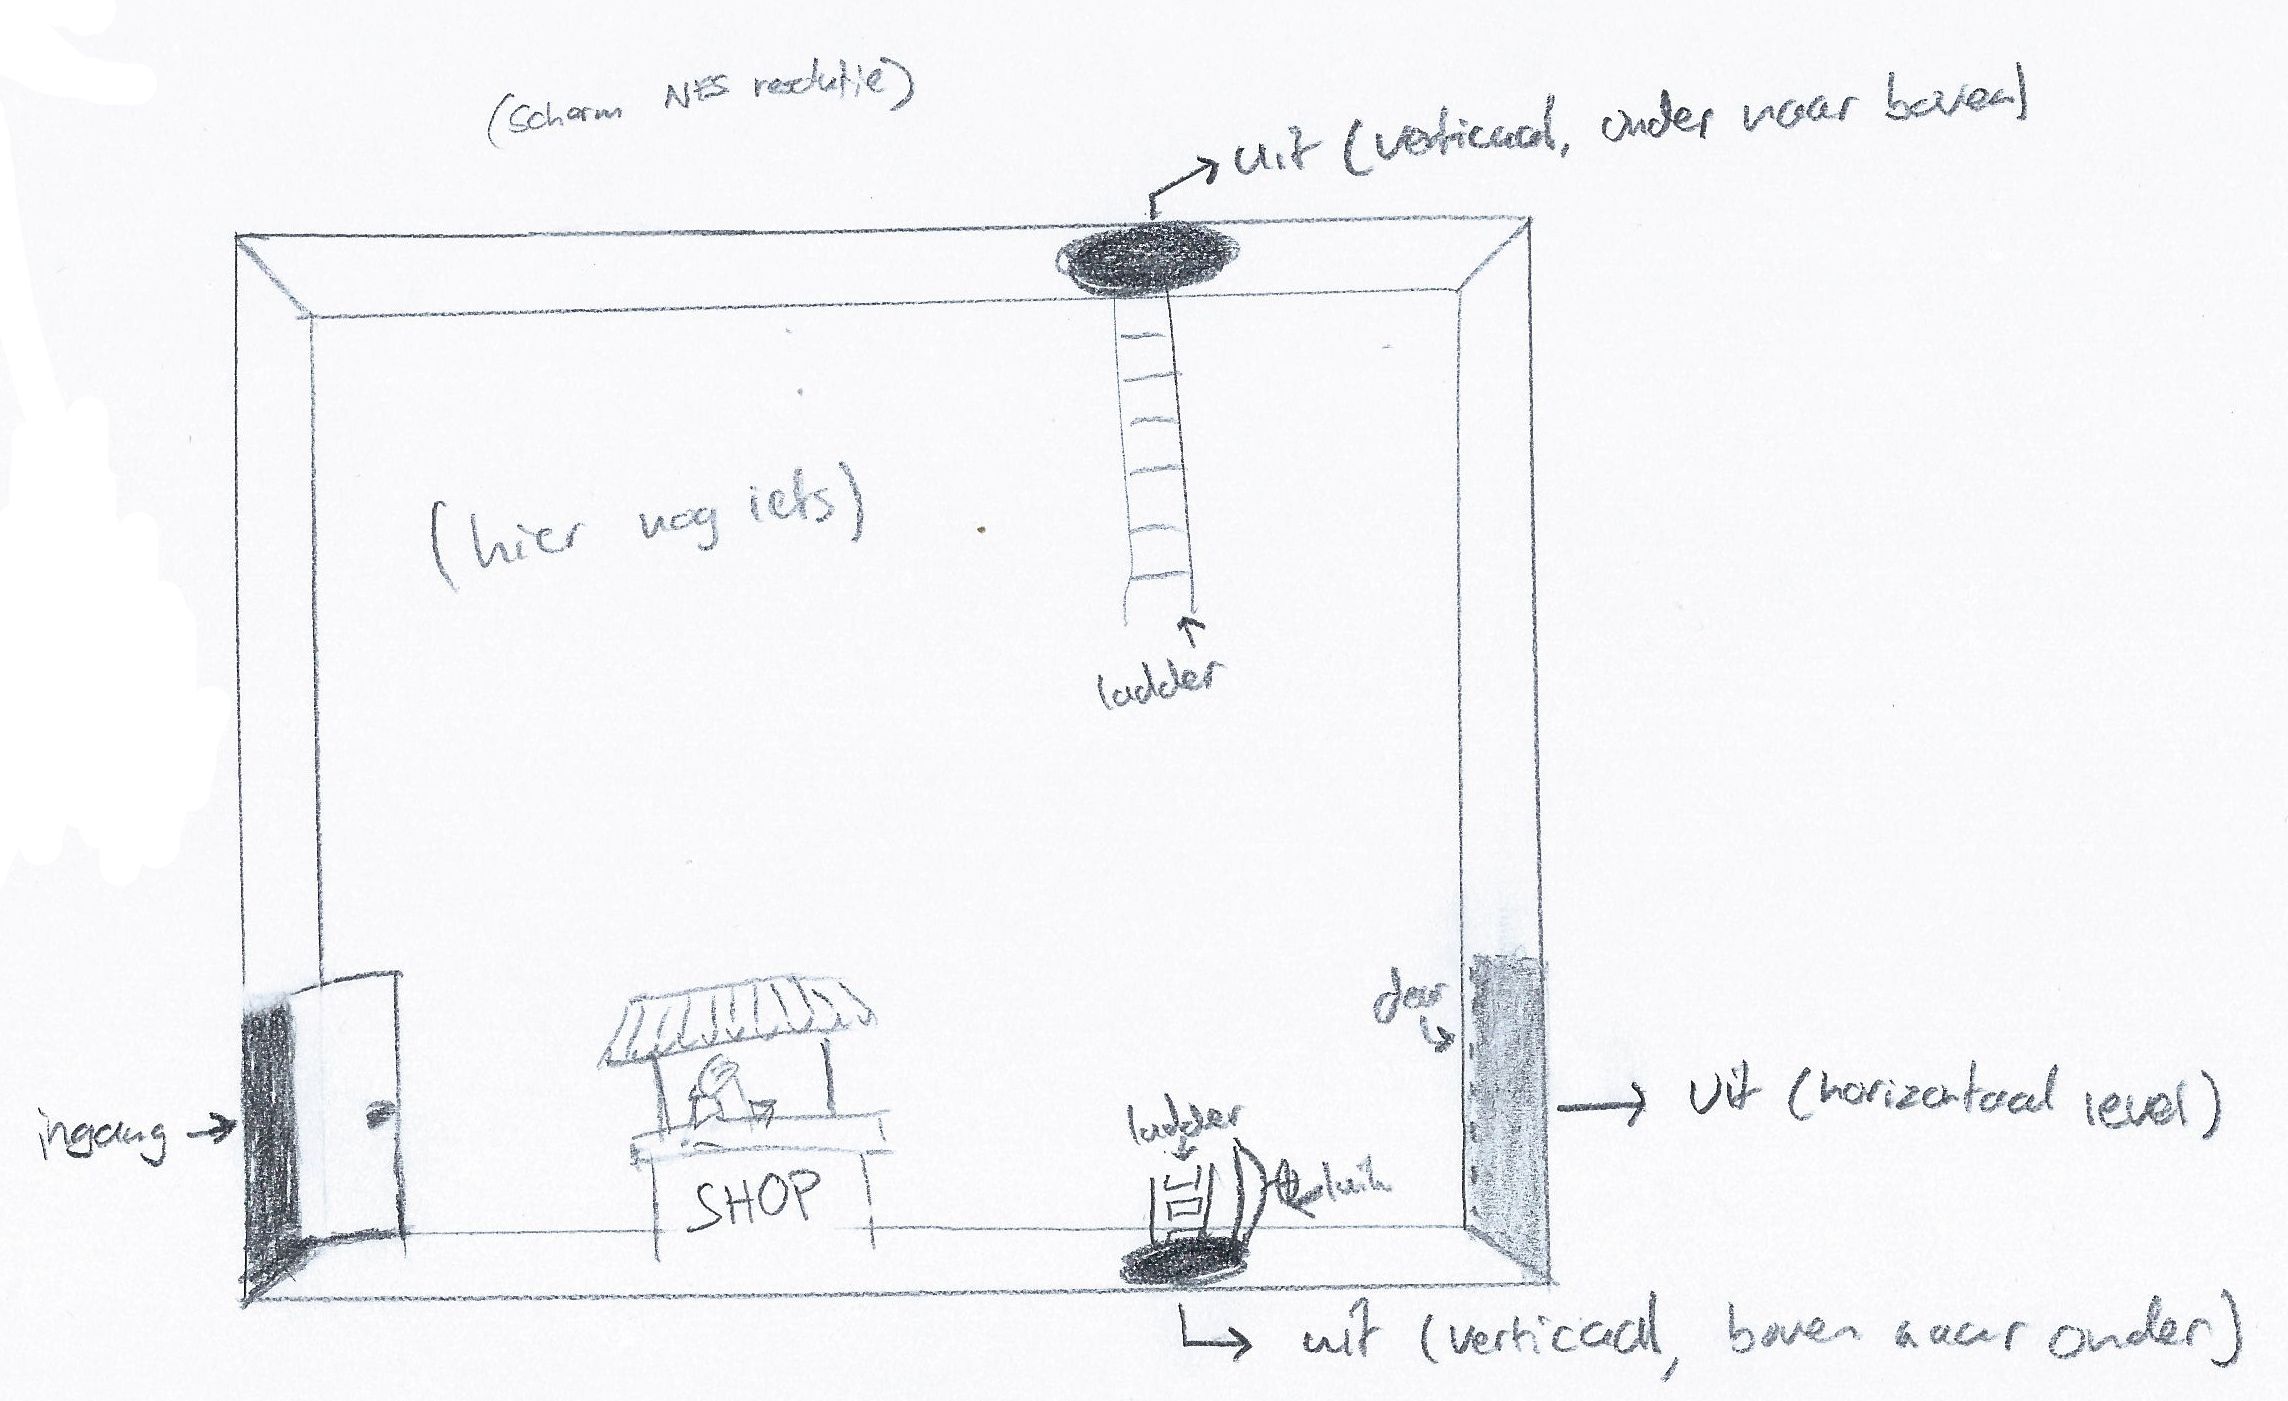 (Scherm NES resolutie)
uit (verticaal, onder naar boven)
(hier nog iets)
ladder
deur
ingang
ladder
luik
SHOP
uit (horizontaal level)
uit (verticaal, boven naar onder)